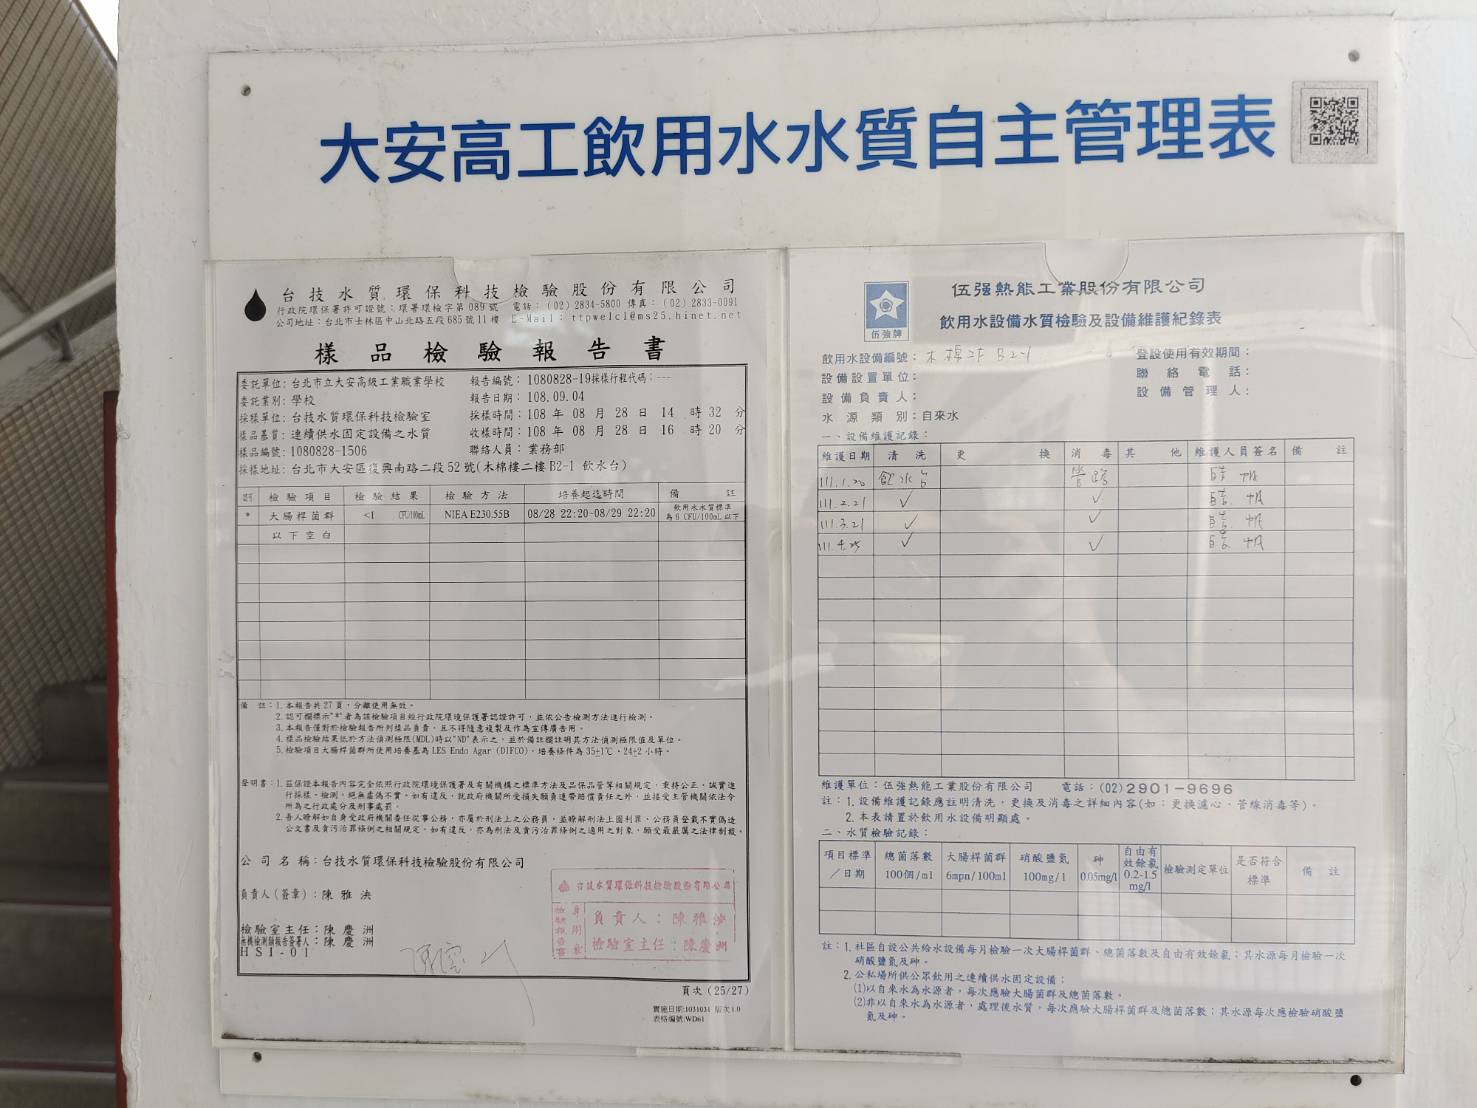 大安高工飲用水水質自主管理表
台技水質環保科技檢驗股份有限公司
行政院環保署許可證號：環署環檢字第089號 電話：(02)2834-5800 傳真：(02)2833-0091
公司地址：台北市士林區中山北路五段685號11樓 E-Mail：ttpwelcl@ms25.hinet.net
樣品檢驗報告書
委託單位：台北市立大安高級工業職業學校 報告編號：1080828-19採樣行程代碼：---
委託業別：學校 報告日期：108.09.04
採樣單位：台技水質環保科技檢驗室 採樣時間：108 年 08 月 28 日 14 時 32 分
樣品基質：連續供水固定設備之水質 收樣時間：108 年 08 月 28 日 16 時 20 分
樣品編號：1080828-1506 聯絡人員：業務部
採樣地址：台北市大安區復興南路二段52號(木棉樓二樓B2-1 飲水台)
認可 檢驗項目 檢驗結果 檢驗方法 培養起迄時間 備註
* 大腸桿菌群 <1 CFU/100mL NIEA E230.55B 08/28 22:20-08/29 22:20 飲用水水質標準為6 CFU/100mL以下
以下空白
備 註：1.本報告共27頁，分離使用無效。
2.認可欄標示"*"者為該檢驗項目經行政院環境保護署認證許可，並依公告檢測方法進行檢測。
3.本報告僅對於檢驗報告所列樣品負責，且不得隨意複製及作為宣傳廣告用。
4.樣品檢驗結果低於方法偵測極限(MDL)時以"ND"表示之，並於備註欄註明其方法偵測極限值及單位。
5.檢驗項目大腸桿菌群所使用培養基為LES Endo Agar (DIFCO)，培養條件為35±1℃、24±2小時。
聲明書：1.茲保證本報告內容完全依照行政院環境保護署及有關機構之標準方法及品保品管等相關規定，秉持公正、誠實進
行採樣、檢測。絕無虛偽不實，如有違反，就政府機關所受損失願負連帶賠償責任之外，並接受主管機關依法令
所為之行政處分及刑事處罰。
2.吾人瞭解如自身受政府機關委任從事公務，亦屬於刑法上之公務員，並瞭解刑法上圖利罪、公務員登載不實偽造
公文書及貪污治罪條例之相關規定，如有違反，亦為刑法及貪污治罪條例之適用之對象，願受最嚴厲之法律制裁。
公司名稱：台技水質環保科技檢驗股份有限公司
負責人(簽章)：陳雅泱
檢驗室主任：陳慶洲
無機檢測類報告簽署人：陳慶洲
HSI-01
台技水質環保科技檢驗股份有限公司
檢驗報告專用章
負責人：陳雅泱
檢驗室主任：陳慶洲
頁次 (25/27)
實施日期:1031031 版次1.0
表格編號:WD61
伍強牌
伍强熱能工業股份有限公司
飲用水設備水質檢驗及設備維護紀錄表
飲用水設備編號：木棉2F B2-1 登設使用有效期間：
設備設置單位： 聯絡電話：
設備負責人： 設備管理人：
水源類別：自來水
一、設備維護記錄：
維護日期 清洗 更換 消毒 其他 維護人員簽名 備註
111.1.20 飲水台 管路
111.2.21 ✓ ✓
111.3.21 ✓ ✓
111.4.25 ✓ ✓
維護單位：伍強熱能工業股份有限公司 電話：(02)2901-9696
註：1.設備維護記錄應註明清洗，更換及消毒之詳細內容(如：更換濾心、管線消毒等)。
2.本表請置於飲用水設備明顯處。
二、水質檢驗記錄：
項目標準／日期 總菌落數 100個/ml 大腸桿菌群 6mpn/100ml 硝酸鹽氮 100mg/l 砷 0.05mg/l 自由有效餘氯 0.2-1.5 mg/l 檢驗測定單位 是否符合標準 備註
註：1.社區自設公共給水設備每月檢驗一次大腸桿菌群、總菌落數及自由有效餘氯；其水源每月檢驗一次
硝酸鹽氮及砷。
2.公私場所供公眾飲用之連續供水固定設備：
(1)以自來水為水源者，每次應驗大腸桿菌群及總菌落數。
(2)非以自來水為水源者，處理後水質，每次應驗大腸桿菌群及總菌落數；其水源每次應檢驗硝酸鹽
氮及砷。